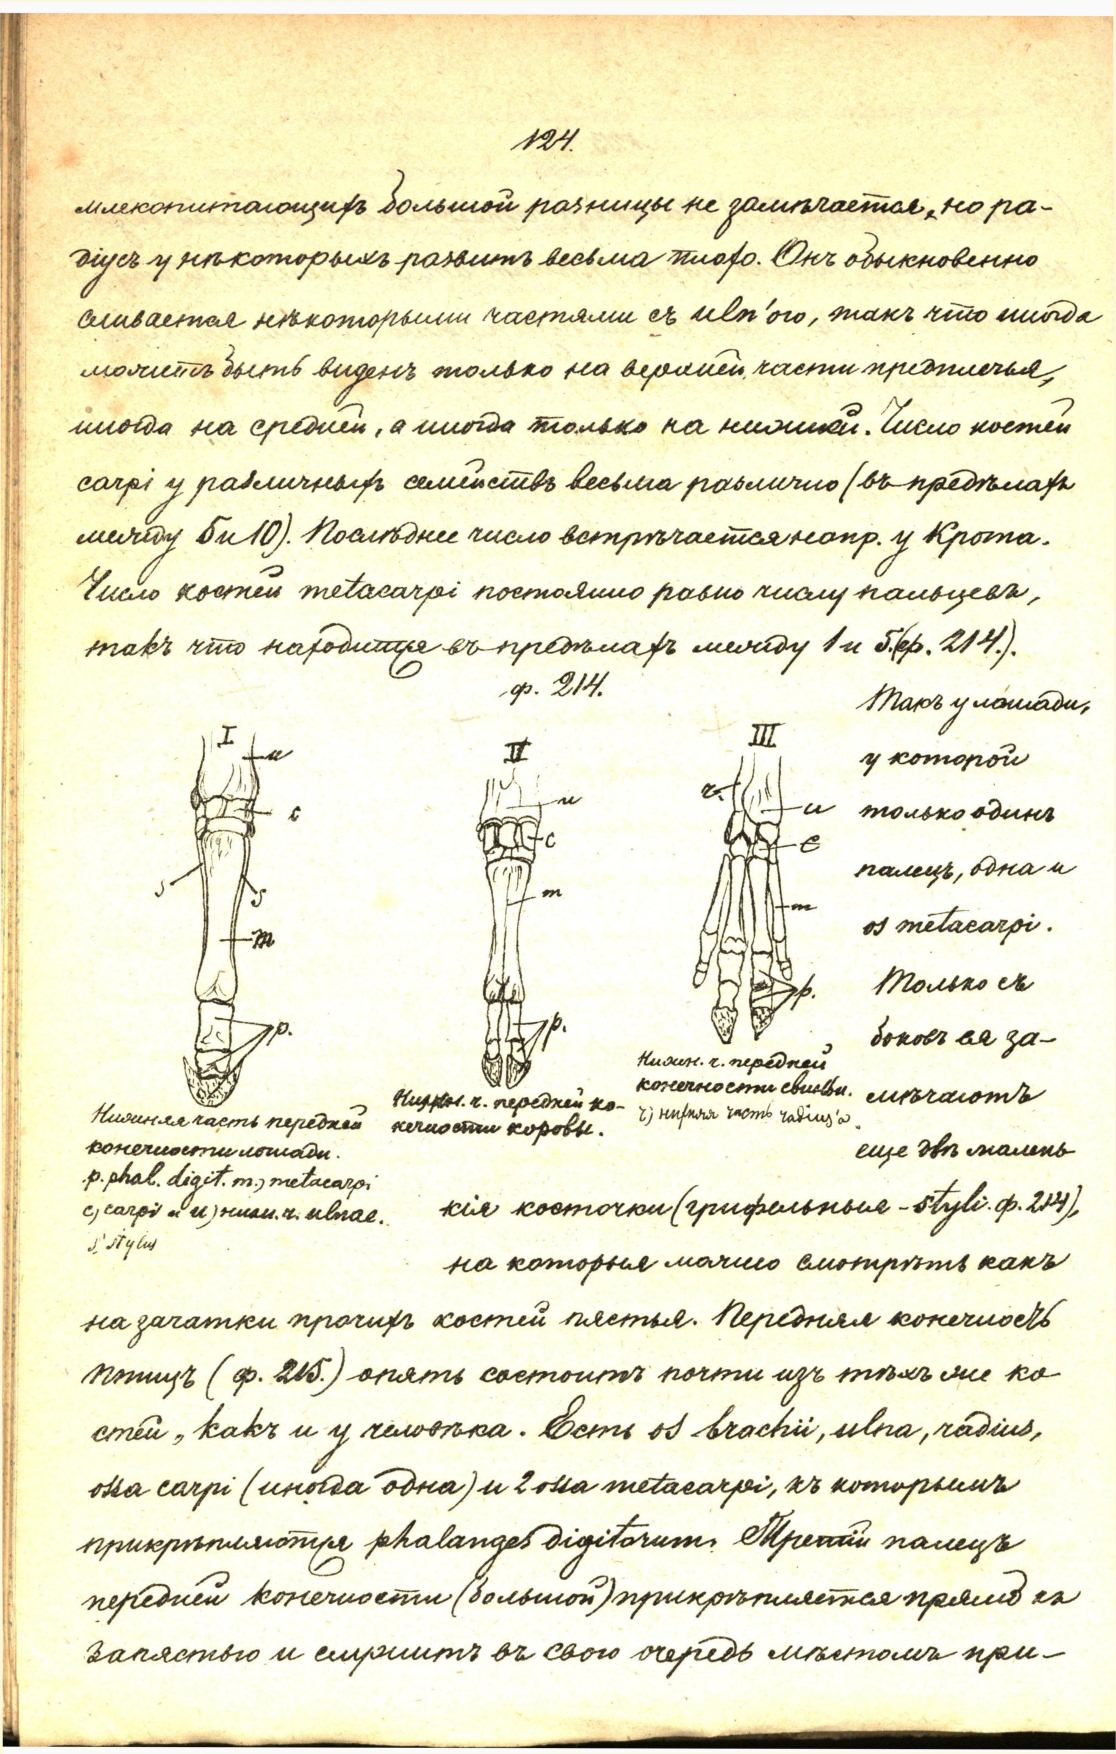 124.
млекопитающихъ большой разницы не замѣчается, но ра-
діусъ у нѣкоторыхъ развитъ весьма плохо. Онъ обыкновенно
сливается нѣкоторыми частями съ uln'ою, такъ что иногда
можетъ быть виденъ только на верхней части предплечья,
иногда на средней, а иногда только на нижней. Число костей
carpi у различныхъ семействъ весьма различно (въ предѣлахъ
между 5 и 10). Послѣднее число встрѣчается напр. у Крота.
Число костей metacarpi постоянно равно числу пальцевъ,
такъ что находится въ предѣлахъ между 1 и 5. (ф. 214.).
ф. 214.
I
u
c
s
s
m
p.
II
u
c
m
p.
III
r.
u
c
m
p.
Нижняя часть передней
конечности лошади.
p. phal. digit. m.) metacarpi
c) carpi u) нижн. ч. ulnae.
s) stylus
Нижн. ч. передней ко-
нечности коровы.
Нижн. ч. передней
конечности свиньи.
r) нижняя часть radius'а.
Такъ у лошади,
у которой
только одинъ
палецъ, одна и
os metacarpi.
Только съ
боковъ ея за-
мѣчаютъ
еще двѣ малень-
кія косточки (грифельныя - styli. ф. 214),
на которыя можно смотрѣть какъ
на зачатки прочихъ костей пястья. Передняя конечность
птицъ (ф. 215.) опять состоитъ почти изъ тѣхъ же ко-
стей, какъ и у человѣка. Есть os brachii, ulna, radius,
ossa carpi (иногда одна) и 2 ossa metacarpi, къ которымъ
прикрѣпляются phalanges digitorum. Третій палецъ
передней конечности (большой) прикрѣпляется прямо къ
запястью и служитъ въ свою очередь мѣстомъ при-